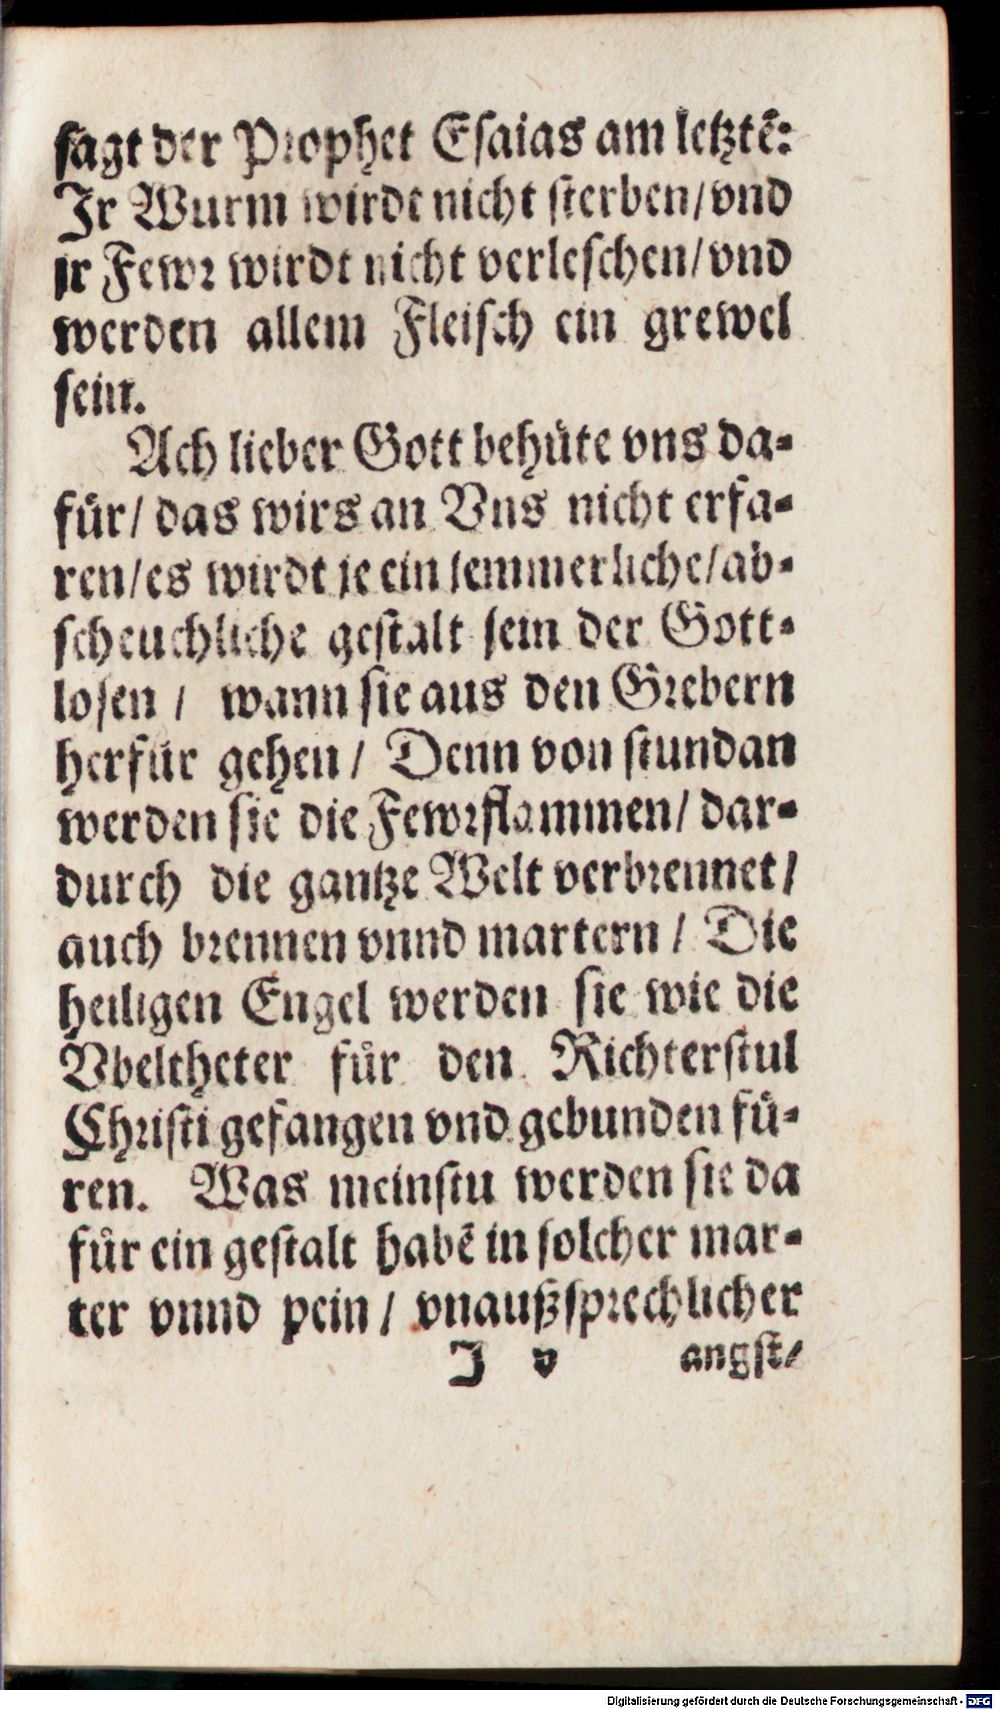 sagt der Prophet Esaias am letztē:
Jr Wurm wirdt nicht sterben/vnd
jr Fewr wirdt nicht verleschen/vnd
werden allem Fleisch ein grewel
sein.
Ach lieber Gott behüte vns da-
für/ das wirs an Vns nicht erfa-
ren/es wirdt je ein jemmerliche/ab-
scheuchliche gestalt sein der Gott-
losen / wann sie aus den Grebern
herfür gehen/ Denn von stundan
werden sie die Fewrflammen/ dar-
durch die gantze Welt verbrennet/
auch brennen vnnd martern / Die
heiligen Engel werden sie wie die
Vbeltheter für den Richterstul
Christi gefangen vnd gebunden fü-
ren. Was meinstu werden sie da
für ein gestalt habē in solcher mar-
ter vnnd pein/ vnaußsprechlicher
J v angst/
Digitalisierung gefördert durch die Deutsche Forschungsgemeinschaft - DFG